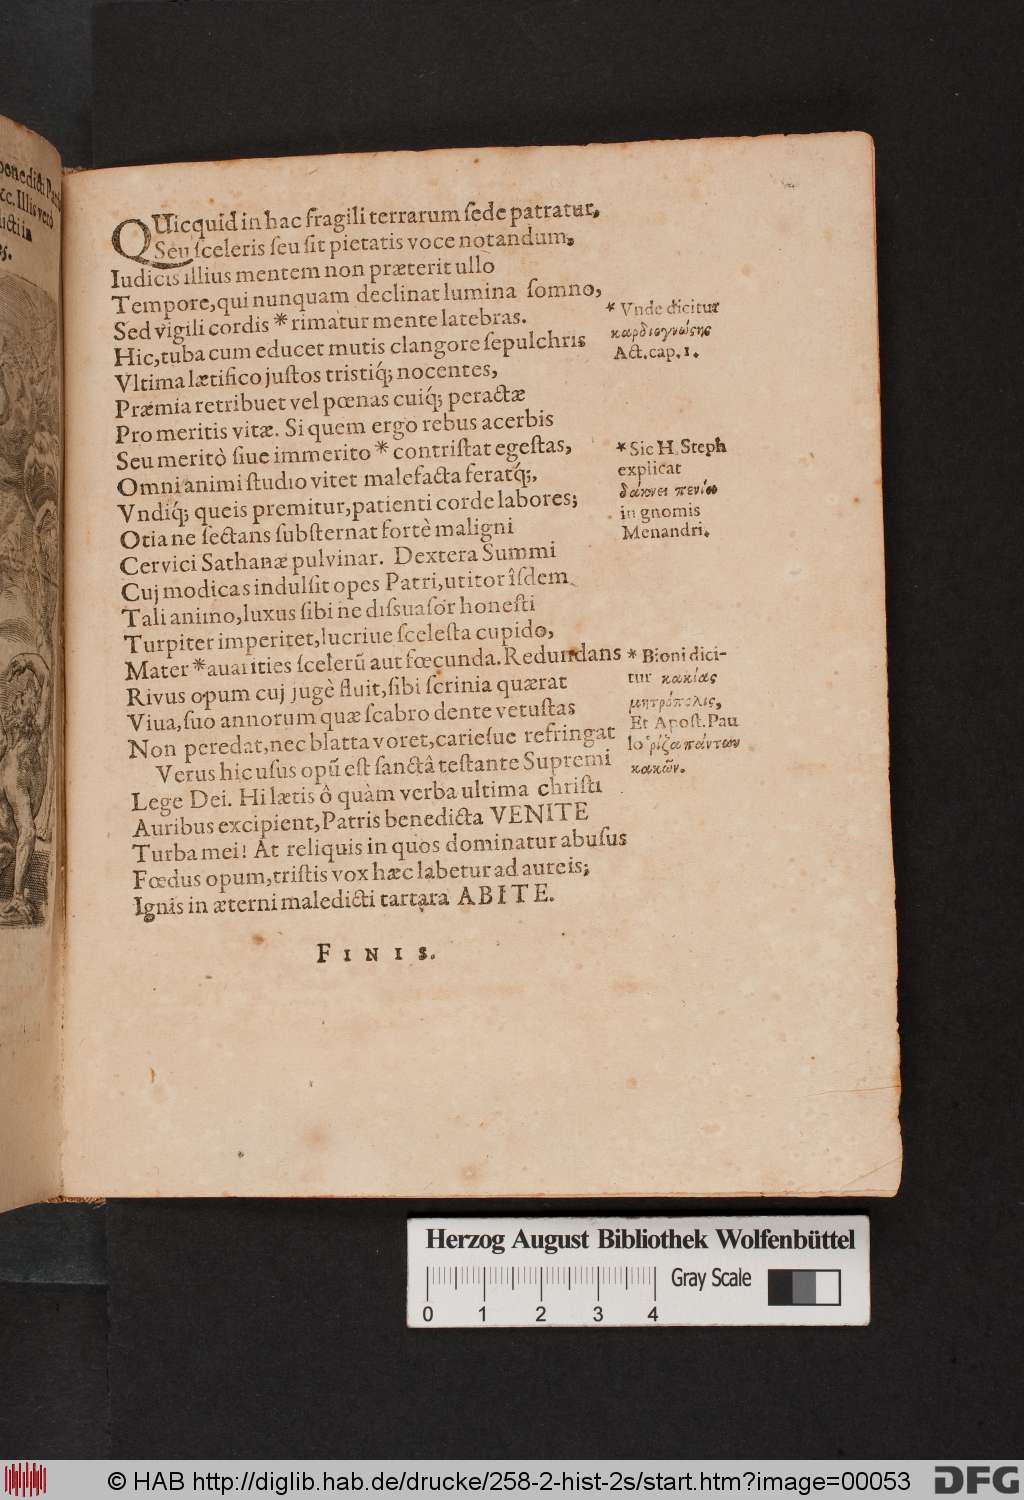 QUicquid in hac fragili terrarum ſede patratur,
Seu ſceleris ſeu ſit pietatis voce notandum,
Iudicis illius mentem non præterit ullo
Tempore, qui nunquam declinat lumina ſomno,
Sed vigili cordis * rimatur mente latebras.
Hic, tuba cum educet mutis clangore ſepulchris
Vltima lætifico juſtos triſtiq́; nocentes,
Præmia retribuet vel pœnas cuiq́; peractæ
Pro meritis vitæ. Si quem ergo rebus acerbis
Seu meritò ſiue immerito * contriſtat egeſtas,
Omni animi ſtudio vitet malefacta feratq́;,
Vndiq́; queis premitur, patienti corde labores;
Otia ne ſectans ſubſternat fortè maligni
Cervici Sathanæ pulvinar. Dextera Summi
Cuj modicas indulſit opes Patri, utitor îſdem
Tali animo, luxus ſibi ne diſſuaſor honeſti
Turpiter imperitet, lucriue ſceleſta cupido,
Mater * auarities ſcelerũ aut fœcunda. Redundans
Rivus opum cuj jugè fluit, ſibi ſcrinia quærat
Viua, ſuo annorum quæ ſcabro dente vetuſtas
Non peredat, nec blatta voret, carieſue refringat
Verus hic uſus opũ eſt ſanctâ teſtante Supremi
Lege Dei. Hi lætis ô quàm verba ultima chriſti
Auribus excipient, Patris benedicta VENITE
Turba mei! At reliquis in quos dominatur abuſus
Fœdus opum, triſtis vox hæc labetur ad aureis;
Ignis in æterni maledicti tartara ABITE.
FINIS.
* Vnde dicitur
καρδιογνώςης
Act. cap. 1.
* Sic H. Steph
explicat
δάκνει πενία
in gnomis
Menandri.
* Bioni dici-
tur κακίας
μητρόπολις,
Et Apoſt. Pau
lo ῥίζα πάντων
κακῶν.
benedicti
&c. Illis verò
dicti in
Herzog August Bibliothek Wolfenbüttel
Gray Scale
0 1 2 3 4
© HAB http://diglib.hab.de/drucke/258-2-hist-2s/start.htm?image=00053
DFG